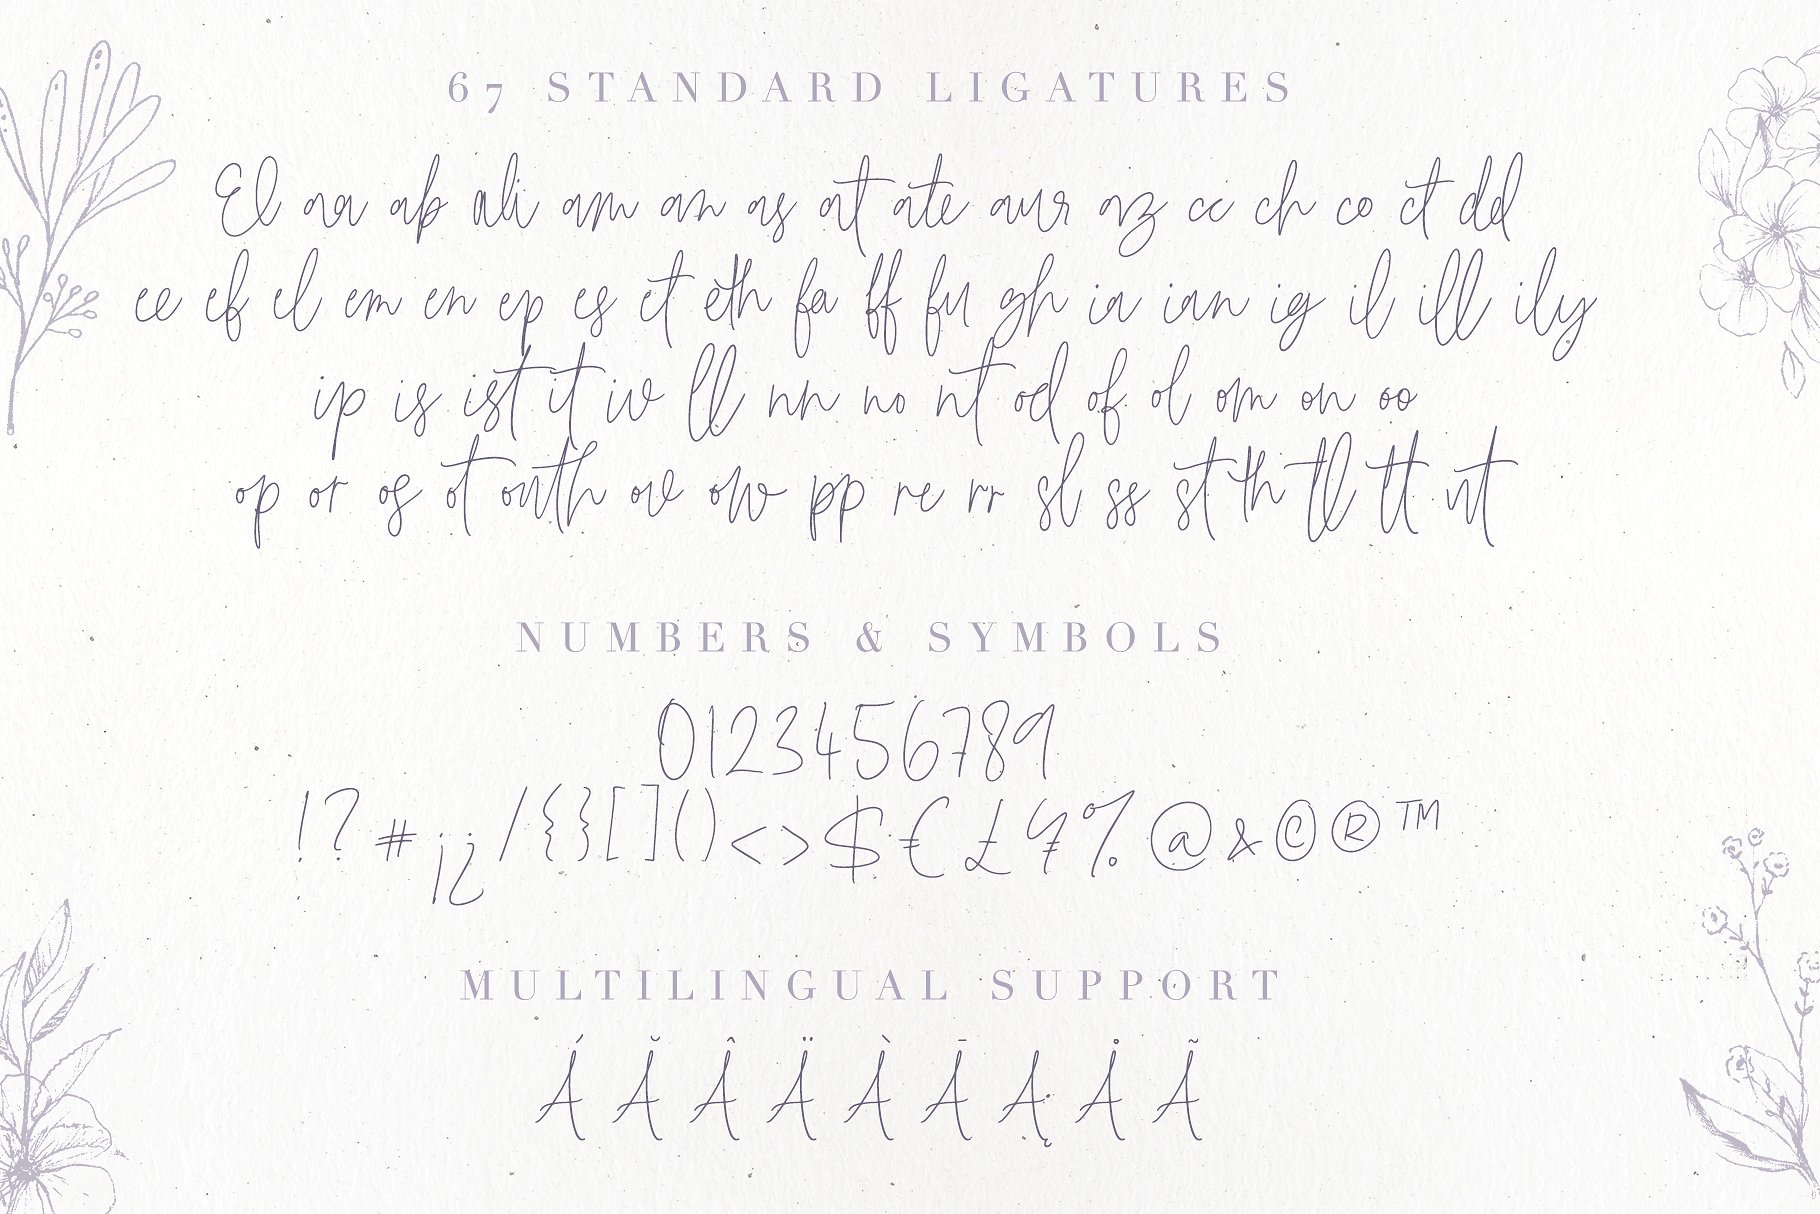 67 STANDARD LIGATURES
El aa ab ali am an as at ate aur az cc ch co ct dd
ee ef el em en ep es et eth fa ff fu gh ia ian ig il ill ily
ip is ist it iv ll nn no nt od of ol om on oo
op or os ot outh ov ow pp re rr sl ss st th tl tt ut
NUMBERS & SYMBOLS
0123456789
!?#¡¿/{}[]()<>$€£¥%@&©®™
MULTILINGUAL SUPPORT
ÁĂÂÄÀĀĄÅÃ